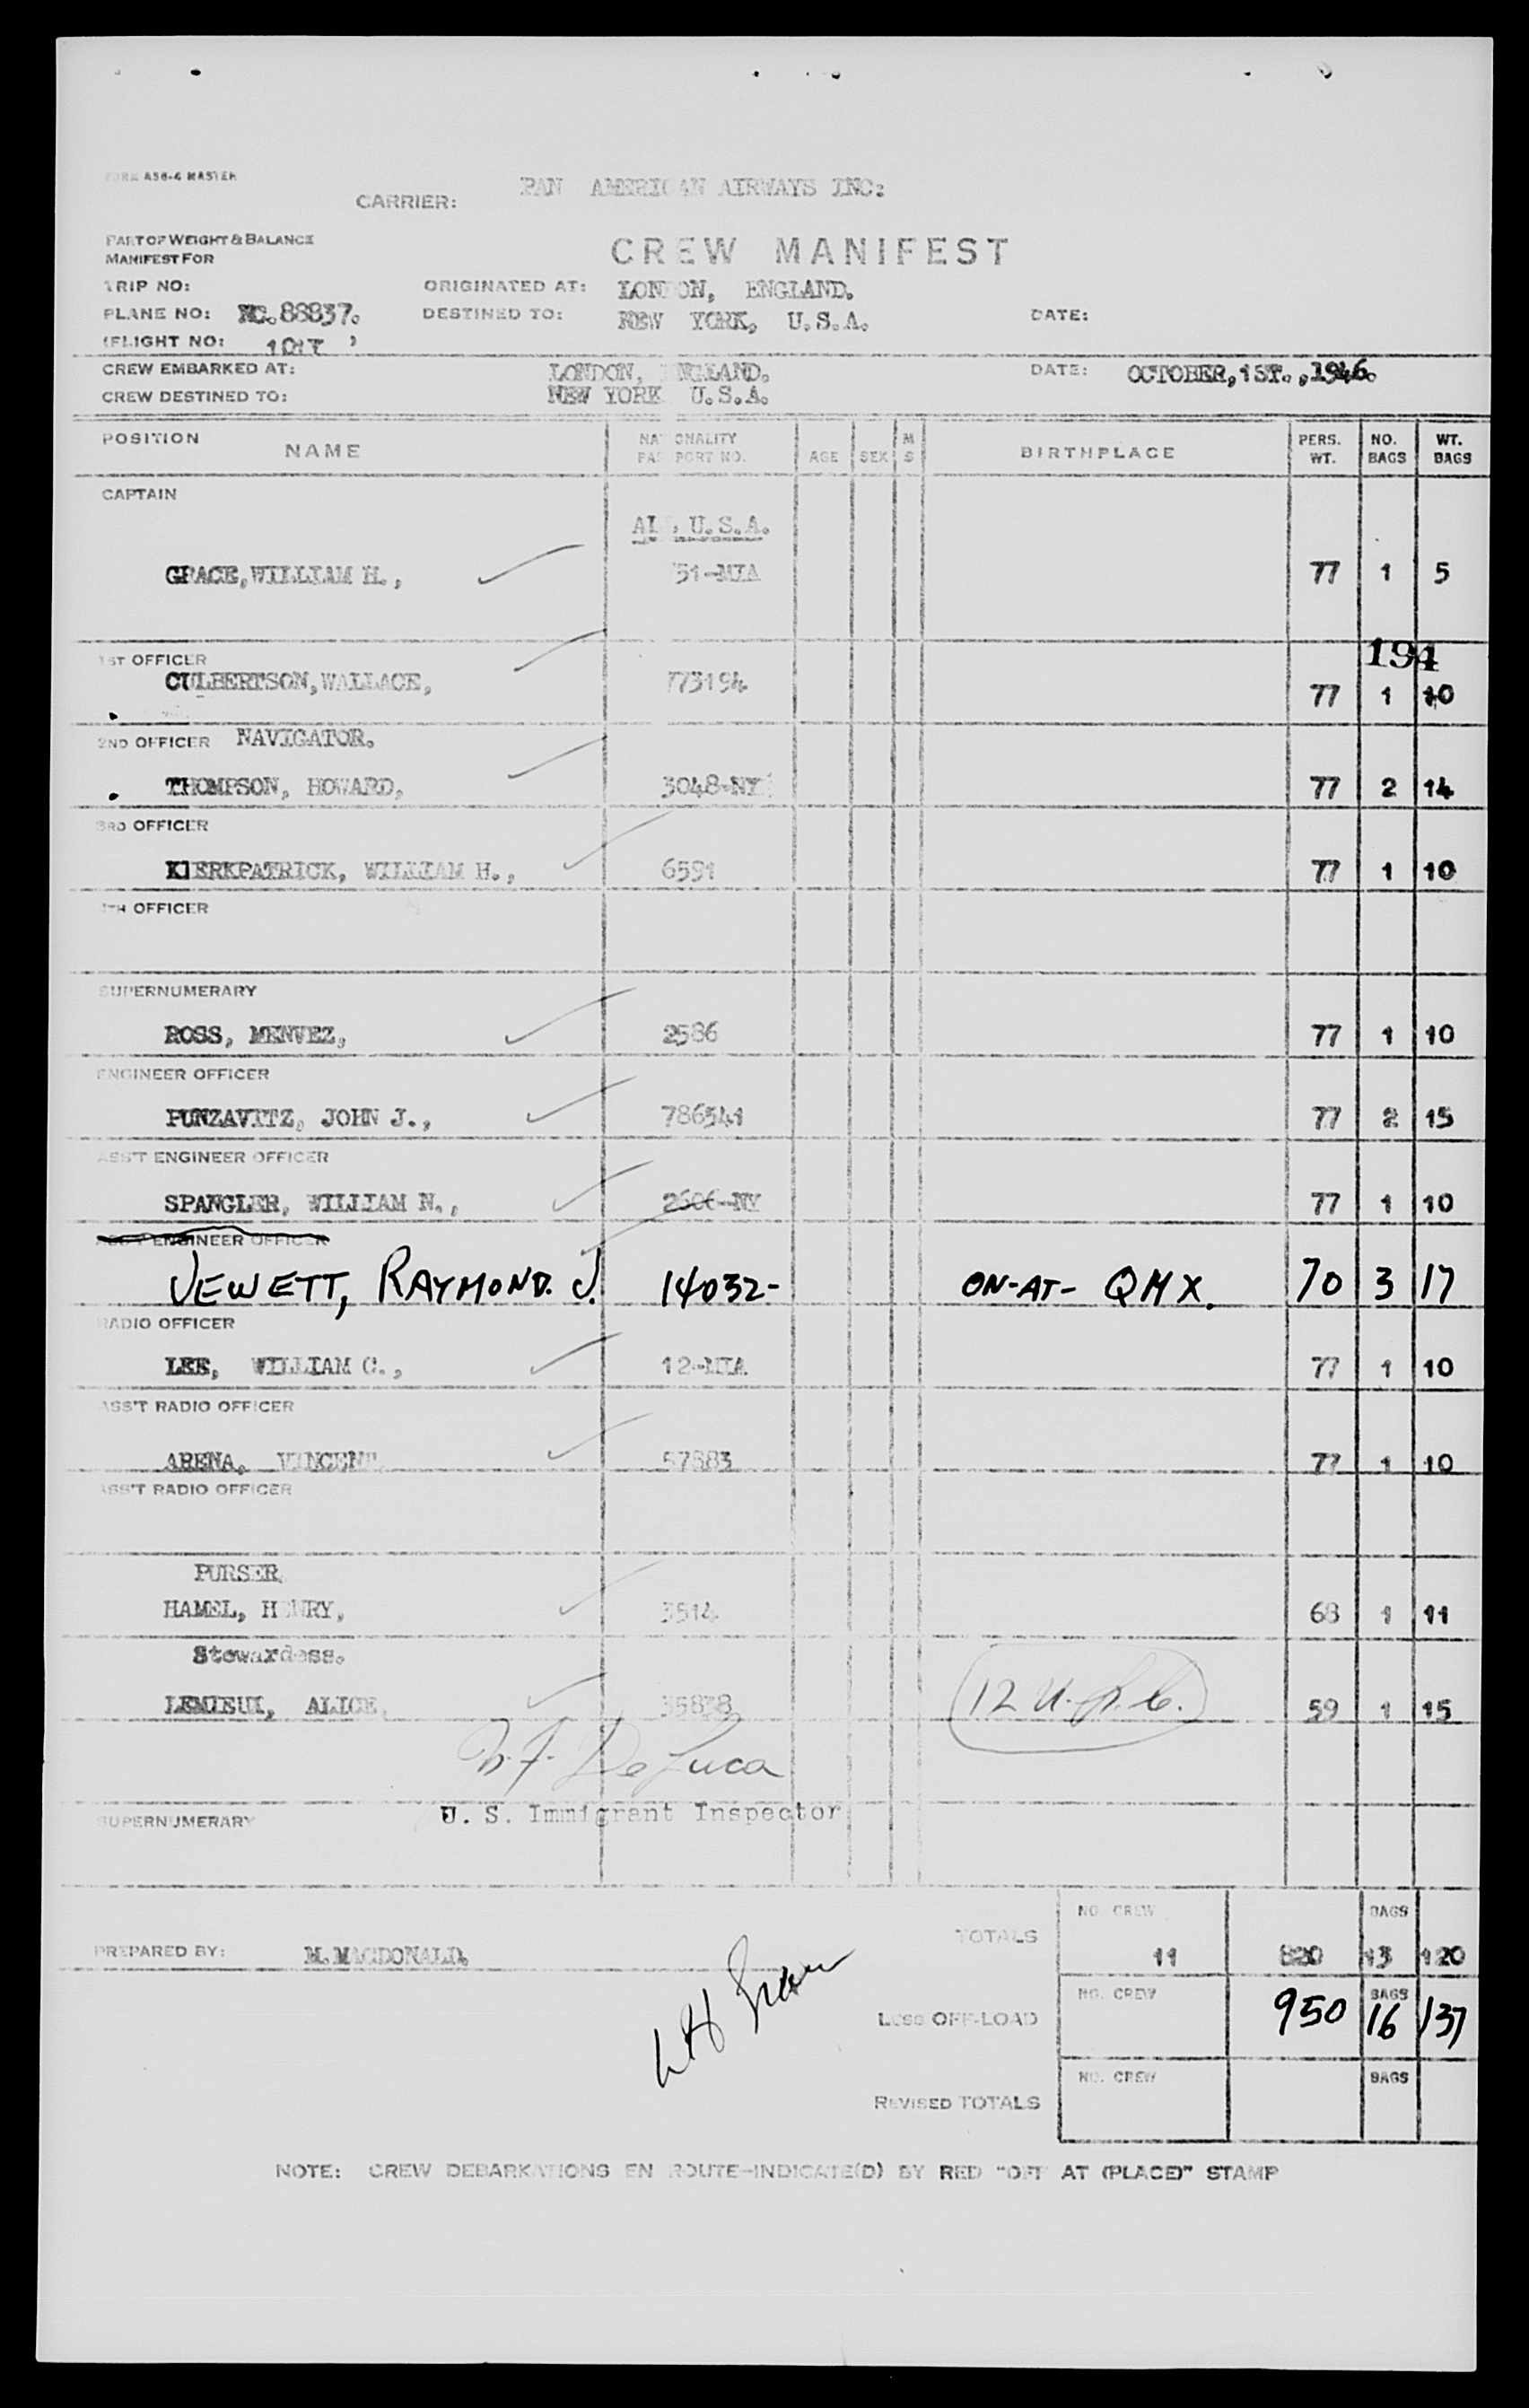 FORM AS8-4 MASTER
CARRIER: PAN AMERICAN AIRWAYS INC:
PART OF WEIGHT & BALANCE
MANIFEST FOR
CREW MANIFEST
TRIP NO: ORIGINATED AT: LONDON, ENGLAND.
PLANE NO: NC.88837. DESTINED TO: NEW YORK, U.S.A. DATE:
(FLIGHT NO:
CREW EMBARKED AT: LONDON, ENGLAND. DATE: OCTOBER,1ST.,1946.
CREW DESTINED TO: NEW YORK U.S.A.
POSITION NAME NATIONALITY PASSPORT NO. AGE SEX M S BIRTHPLACE PERS. WT. NO. BAGS WT. BAGS
CAPTAIN
ALL, U.S.A.
GRACE,WILLIAM H., 51-MIA 77 1 5
194
1ST OFFICER
CULBERTSON,WALLACE, 773194 77 1 10
2ND OFFICER NAVIGATOR.
THOMPSON, HOWARD, 3048-NY 77 2 14
3RD OFFICER
KIERKPATRICK, WILLIAM H., 6591 77 1 10
4TH OFFICER
SUPERNUMERARY
ROSS, MENVEZ, 2586 77 1 10
ENGINEER OFFICER
PUNZAVITZ, JOHN J., 786541 77 2 15
ASS'T ENGINEER OFFICER
SPANGLER, WILLIAM N., 2606-NY 77 1 10
ASS'T ENGINEER OFFICER
JEWETT, RAYMOND. J. 14032- ON-AT- QMX. 70 3 17
RADIO OFFICER
LEE, WILLIAM C., 12-MIA 77 1 10
ASS'T RADIO OFFICER
ARENA, VINCENT 57883 77 1 10
ASS'T RADIO OFFICER
PURSER
HAMEL, HENRY, 3514 68 1 11
Stewardess.
LEMIEUX, ALICE, 35878 12 U.S.C. 59 1 15
De Luca
U. S. Immigrant Inspector
SUPERNUMERARY
NO. CREW BAGS
TOTALS 11 820 13 120
PREPARED BY: M.MACDONALD.
NO. CREW BAGS
LESS OFF-LOAD 950 16 137
WH Grace
NO. CREW BAGS
REVISED TOTALS
NOTE: CREW DEBARKATIONS EN ROUTE-INDICATE(D) BY RED "OFF AT (PLACE)" STAMP